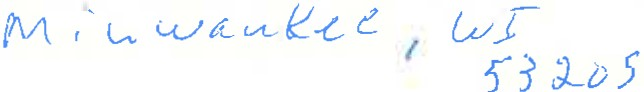 Minwaukee, WI
53205